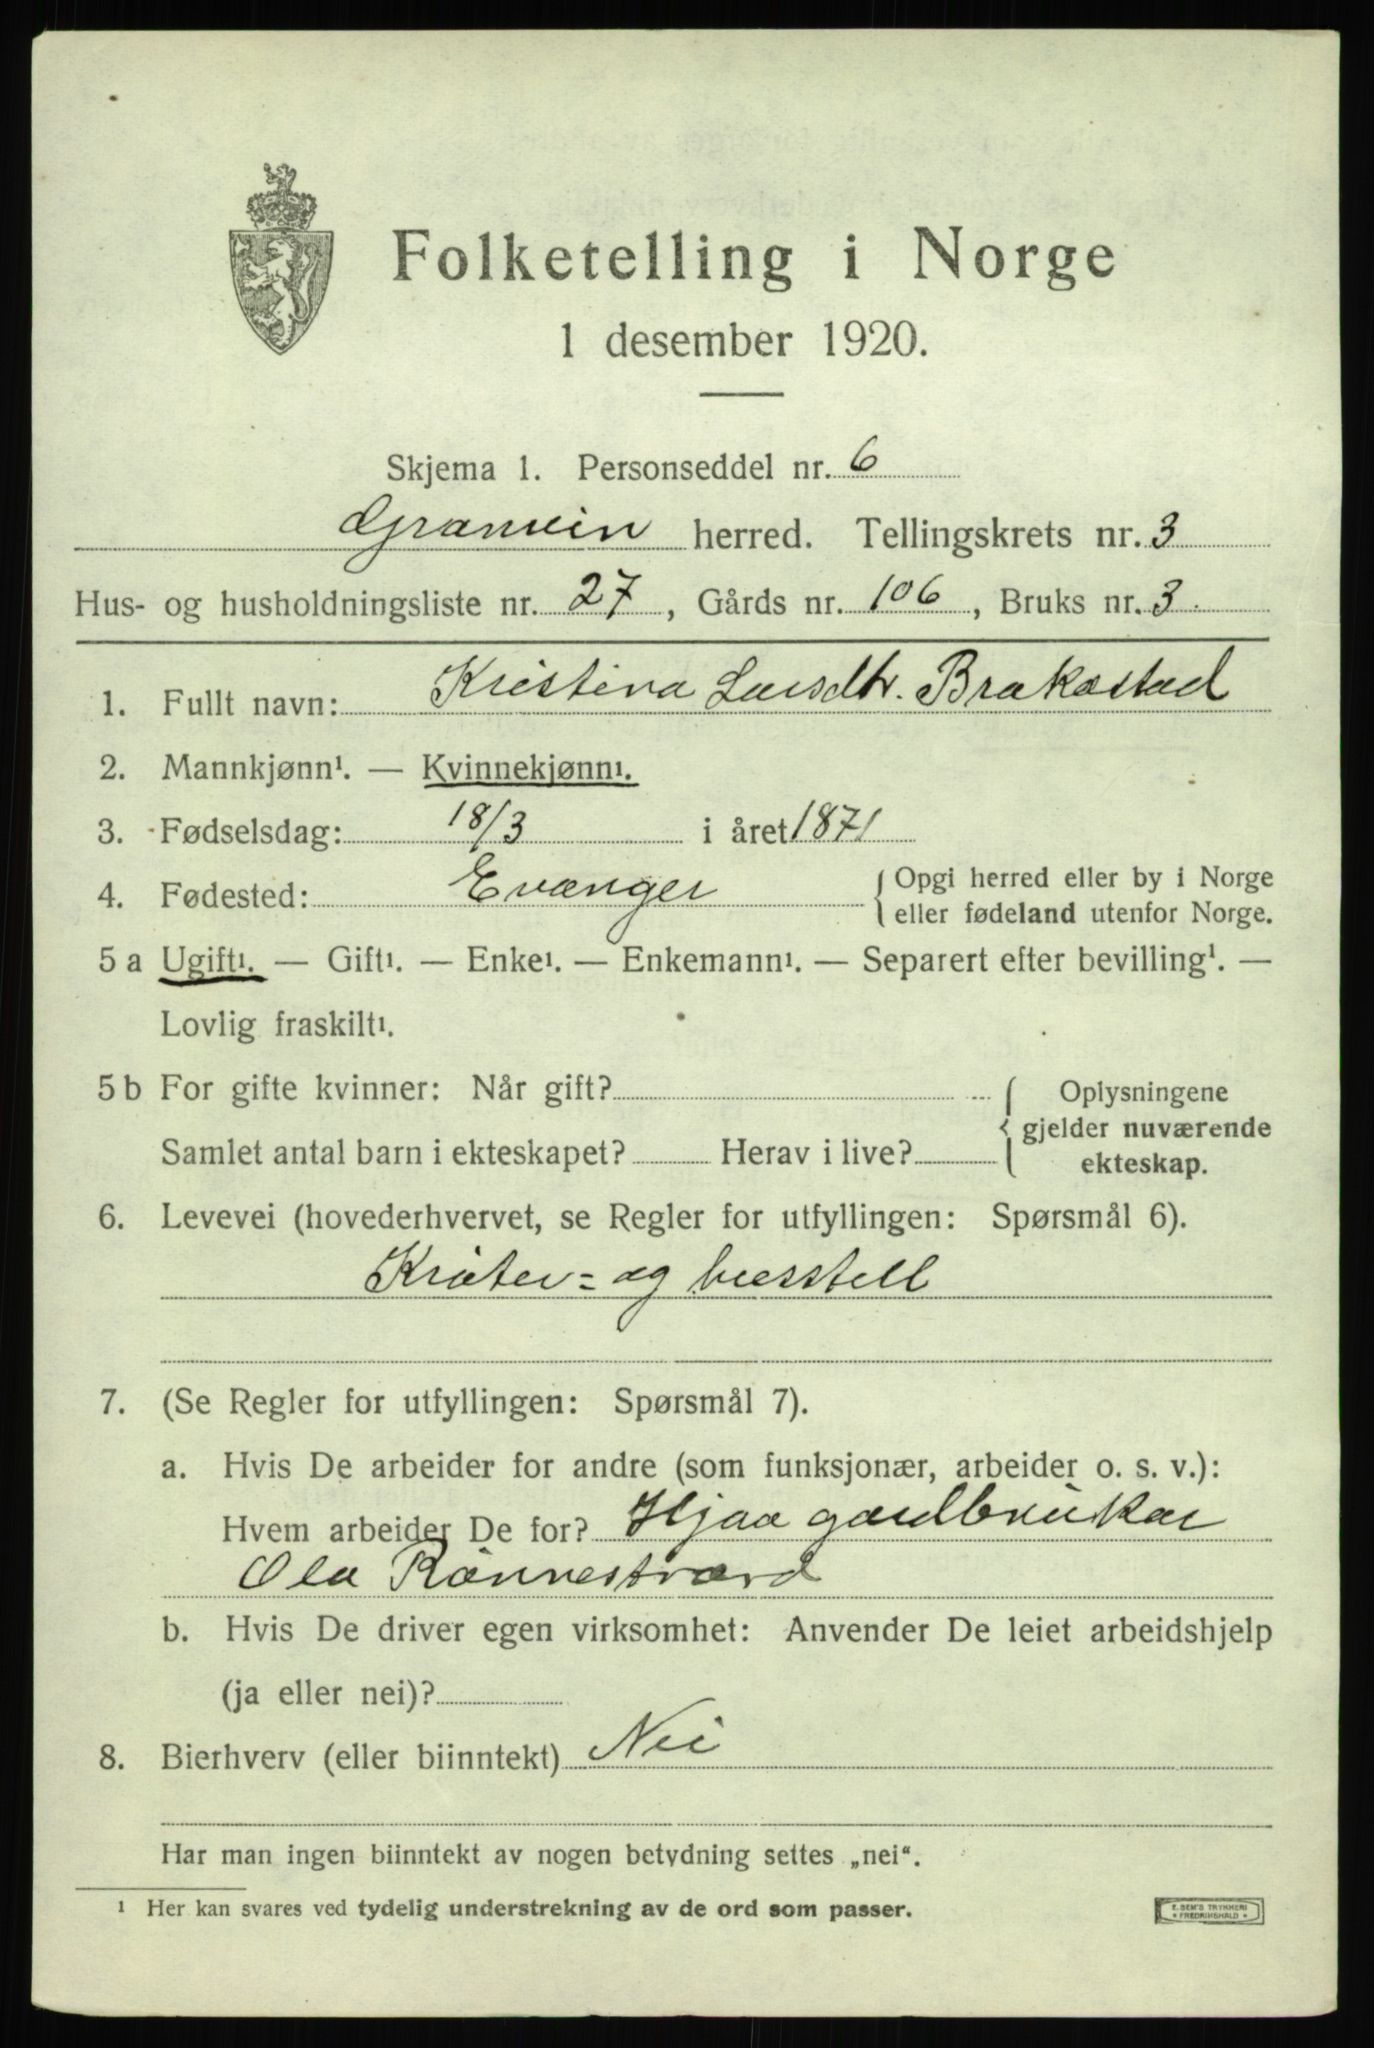 Folketelling i Norge
1 desember 1920.
Skjema 1. Personseddel nr. 6
Granvin herred. Tellingskrets nr. 3
Hus- og husholdningsliste nr. 27, Gårds nr. 106, Bruks nr. 3.
1. Fullt navn: Kristina Larsdtr. Brakestad
2. Mannkjønn¹. — Kvinnekjønn¹.
3. Fødselsdag: 18/3 i året 1871
4. Fødested: Evanger {Opgi herred eller by i Norge
eller fødeland utenfor Norge.
5 a Ugift¹. — Gift¹. — Enke¹. — Enkemann¹. — Separert efter bevilling¹. —
Lovlig fraskilt¹.
5 b For gifte kvinner: Når gift? Oplysningene
gjelder nuværende
Samlet antal barn i ekteskapet? Herav i live? ekteskap.
6. Levevei (hovederhvervet, se Regler for utfyllingen: Spørsmål 6).
Krøter- og husstell
7. (Se Regler for utfyllingen: Spørsmål 7).
a. Hvis De arbeider for andre (som funksjonær, arbeider o. s. v.):
Hvem arbeider De for? Hjaa gardbrukar
Ola Rønnestrand
b. Hvis De driver egen virksomhet: Anvender De leiet arbeidshjelp
(ja eller nei)?
8. Bierhverv (eller biinntekt) Nei
Har man ingen biinntekt av nogen betydning settes „nei“.
¹ Her kan svares ved tydelig understrekning av de ord som passer.
E. SEM'S TRYKKERI
• FREDRIKSHALD •